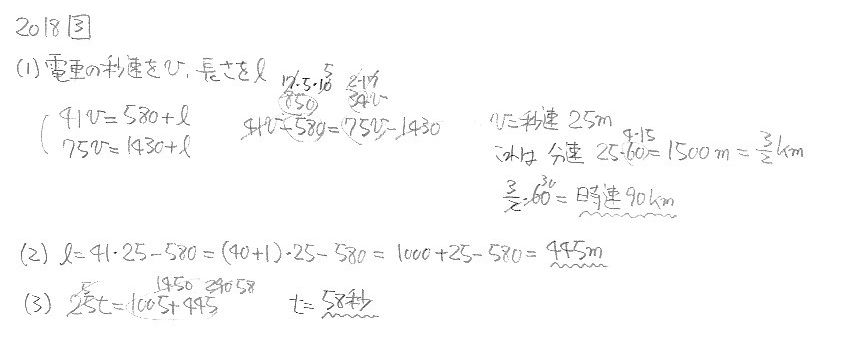 2018 3
(1) 電車の秒速をv、長さをl
41v=580+l
75v=1430+l
17・5・10 5 2・17
850 34v
41v-580=75v-1430
v=秒速 25m
4・15
これは 分速 25・60=1500m=3/2km
30
3/2・60=時速90km
(2) l=41・25-580=(40+1)・25-580=1000+25-580=445m
5 1450 290 58
(3) 25t=1005+445 t=58秒